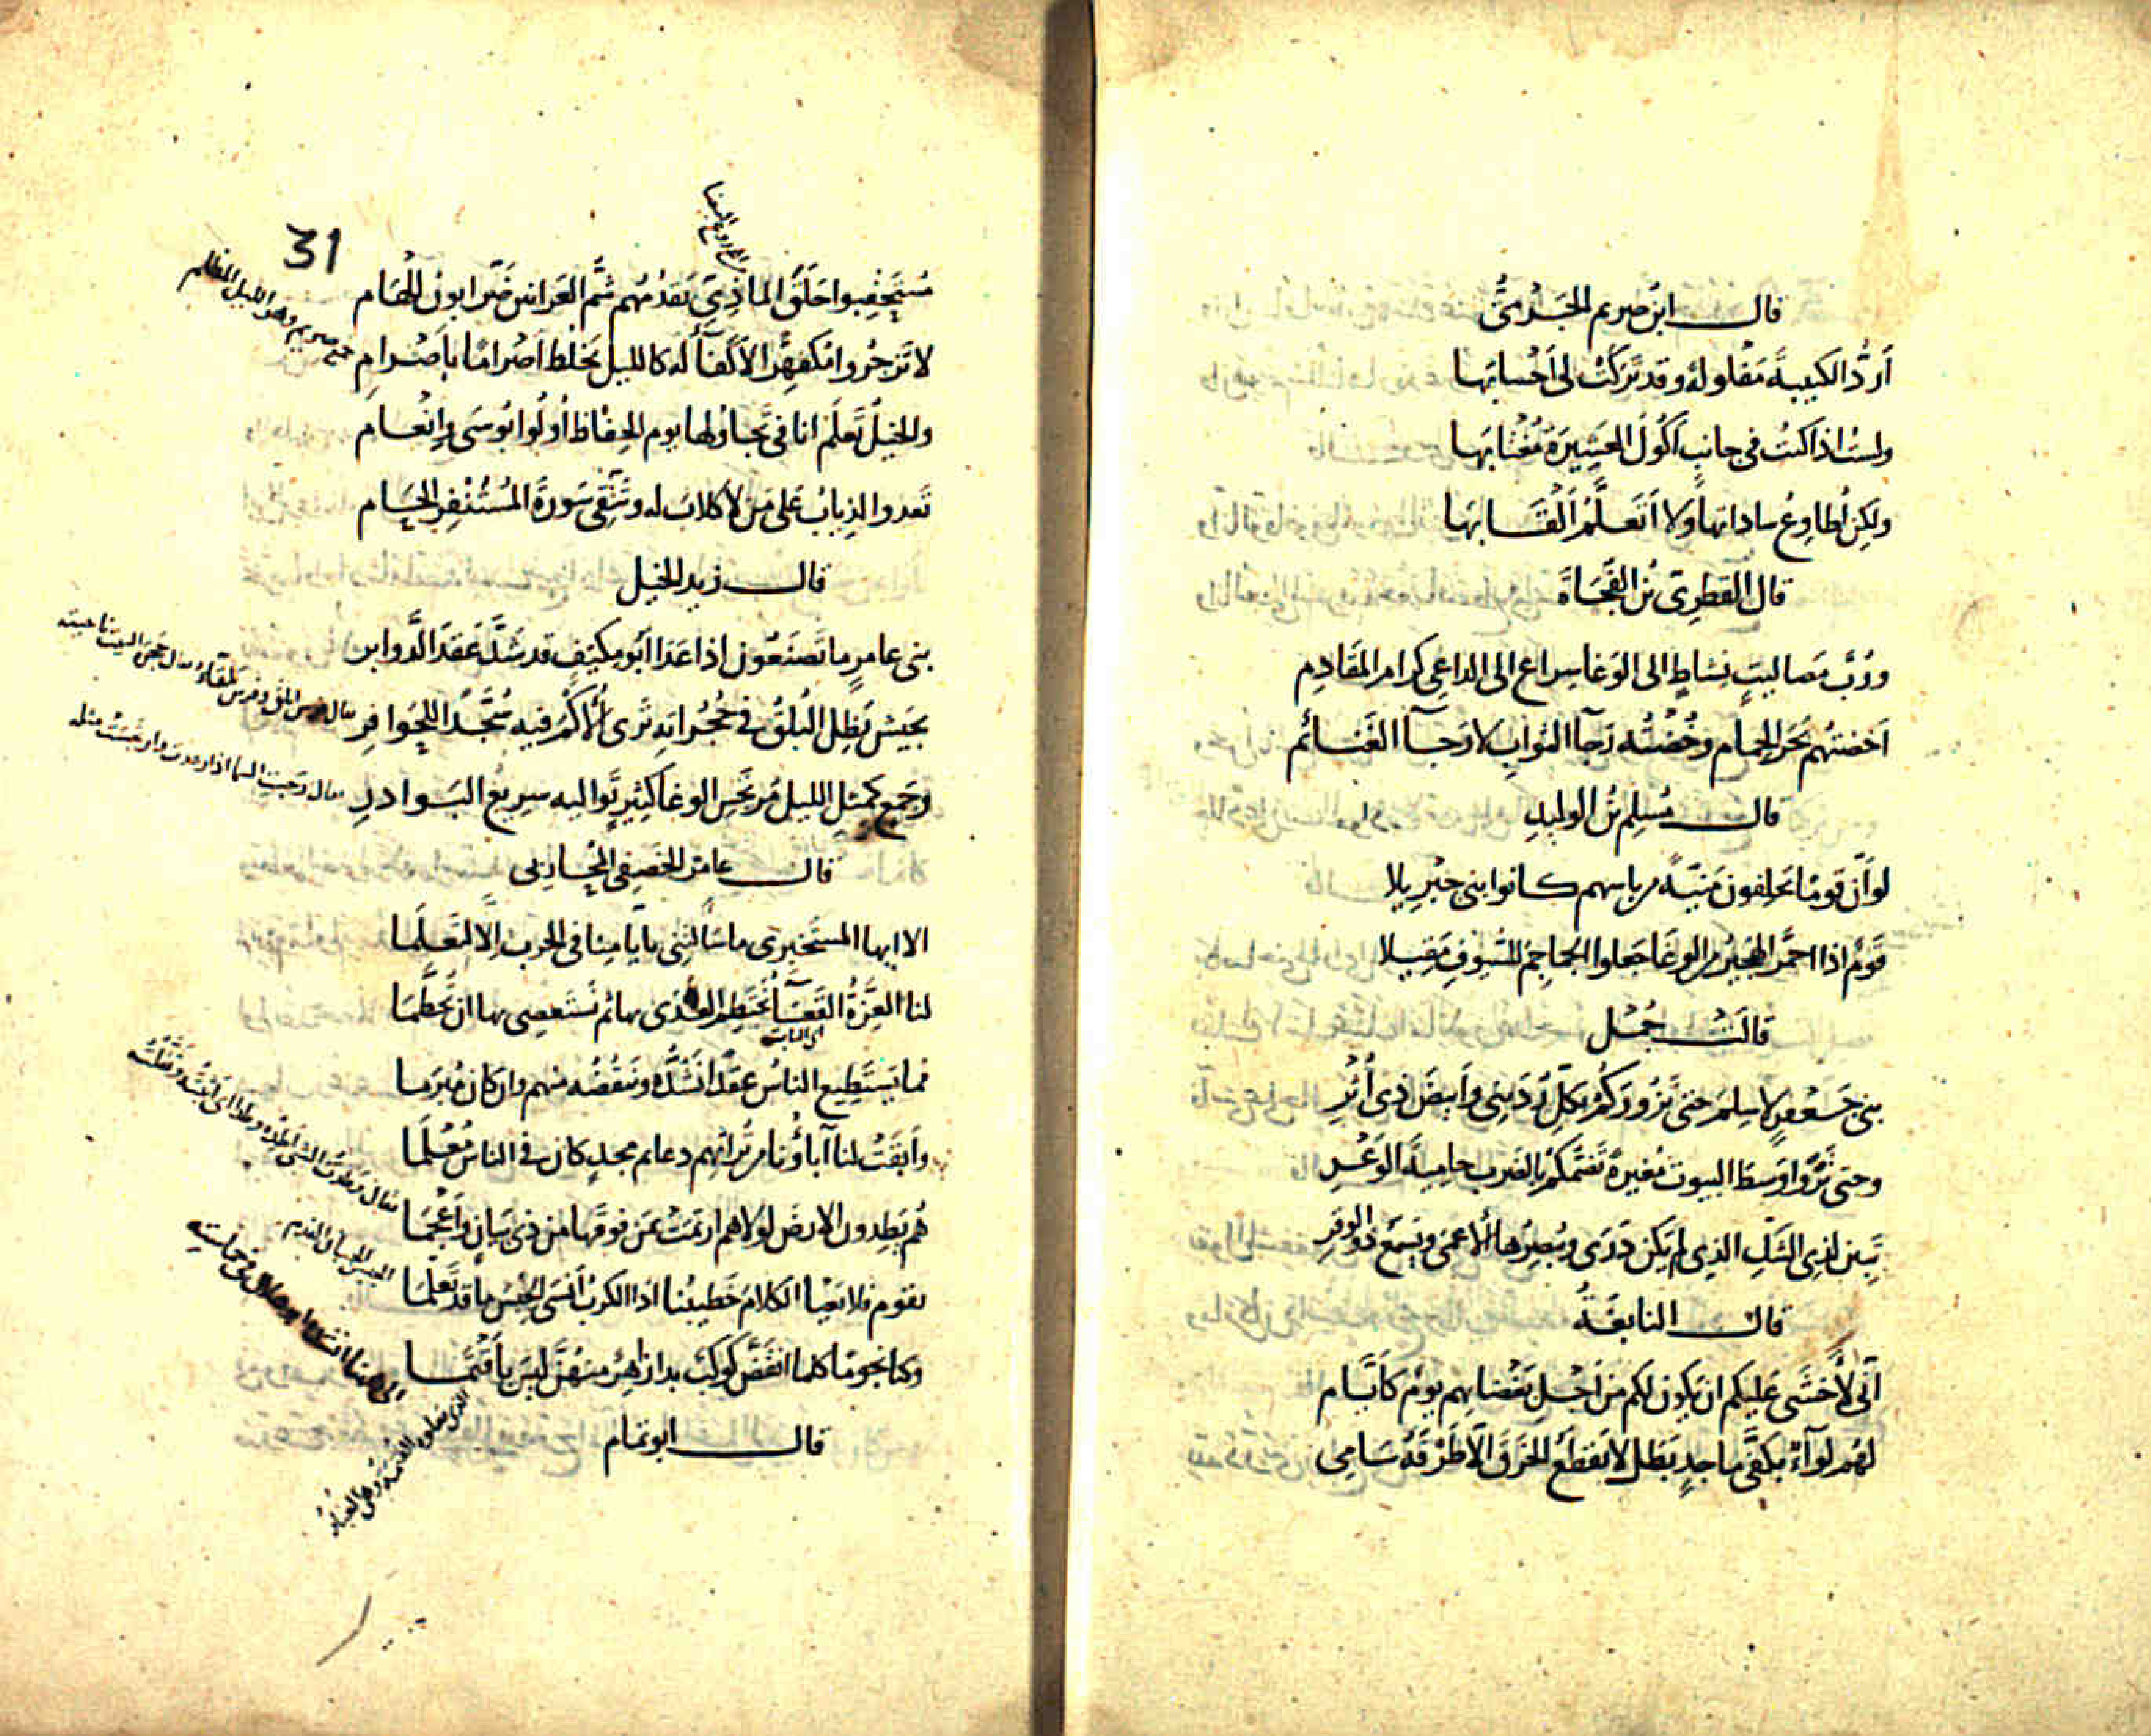 قال ابن صريم الجَرْمىّ
أردُّ الكتيبةَ مفلولةً وقد تركَتْ لى أحسابَها
ولستُ اذا كنتُ فى جانبٍ أكُولَ العشيرَة مُغْتابَها
ولكن أطاوِعُ ساداتها ولا أتعلَّمُ ألقابَها
قال القطرِىّ بن الفُجَاءَة
ورُبَّ مصاليتٍ نشاطٍ الى الوغا سراعٍ الى الداعِى كرام المقادِمِ
أخضتُهم بحر الحِمام وخُضتُه رجاآ الثواب لا رجاآ الغنائم
قال مُسلم بن الوليد
لو أنّ قومًا يخلقون منيّةً من باسهم كانوا بنى جبْرِيلا
قومٌ اذا احمرَّ الهجيرُ من الوغا جعلوا الجماجِمَ للسّيوفِ مَقِيلا
قالتْ جُمْل
بنى جعفرٍ لا سِلمَ حتى نزُورَكُم بكلِّ رُدَينىٍّ وأبيضَ ذى أُثْرِ
وحتى تَرَوا وسطَ البيوت مُغيرةً تضمّكم بالضرب حاميةَ الوَعْرِ
تبين لذى الشك الذى لم يكن درى ويُبصِرُها الأعمى ويسمع ذو الوقرِ
قال النابغةُ
انّى لأخشَى عليكم ان يكون لكم من أجْلِ بَغْضائِهم يومٌ كأيّامِ
لهم لوآءٌ بكفَّى ماجدٍ بطلٍ لا يقطع الخَرقَ الّا طَرْفُهُ سَامِى
31
مُستحقِبوا حَلَقَ الماذِىّ يَقدُمُهم شُمُّ العَرانينِ ضَرّابونَ للهامِ
لا تزجُروا مُكفهِرًّا لا كِفآءَ له كالليل يخلط أصرامًا بأصْرامِ
جمع صريم وهو الليل المظلم
والخيلُ تعلَم انا فى تجاولها يوم الحِفاظ أولوا بُوسَى وإنْعامِ
تعدو الذياب على من لا كلاب له وتتّقى سَورةَ المُستنْفِر الحامِ
قال زيد الخيل
بنى عامرٍ ما تصنَعُون اذا غدا ابُو مِكنَفٍ قد شدَّ عَقدَ الدَّوابرِ
بجيشٍ تظِل البُلقُ فى حَجراتِه ترى الأُكْمَ فيه سُجَّدًا للحَوافِرِ
وجمعٍ كمثلِ الليل مُرتجِس الوغا كثيرٍ تَواليه سريعِ البَوادرِ
قال عامر الخصفى المُحاربى
الا ايها المستخبرى ما سألتنى باّيامِنا فى الحرب الّا لتعلَمَا
لنا العِزّةُ القَعسآ نختطِمُ العِدى بها ثم نستعصِى بها ان نُحَطَّما
اى الثابتة
فما يَستَطِيع الناسُ عَقدًا نشُدُّه وننقُضُه منهم وان كان مُبرَما
وأبقَتْ لنا آباؤُنا من تُراثِهم دعايم مجدٍ كان فى الناسِ مُعلَمَا
هُم يَطِدون الارض لولاهم ارتمَتْ بمَن فوقَها من ذى بَيانٍ وأعْجَمَا
يقوم فلا يَعيا الكلامَ خَطيبُنا اذا الكربُ أنسَى الجِبسَ ما قد تعلّمَا
الجبس الجبان الفدم
وكنا نجومًا كلما انقَضَّ كوكبٌ بدا زاهِرٌ منهنَّ ليسَ بأقْتَمَا
قال ابو تمام